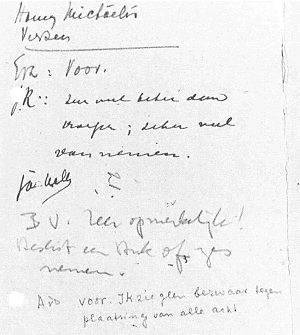 Henny Michaëlis
Verzen
Erk: Voor.
jR:: zeer veel beter dan
vroeger; zeker veel
van nemen.
B V. Zeer opmerkelijk!
Beslist een stuk of zes
nemen.
AvD voor. Ik zie geen bezwaar tegen
plaatsing van alle acht